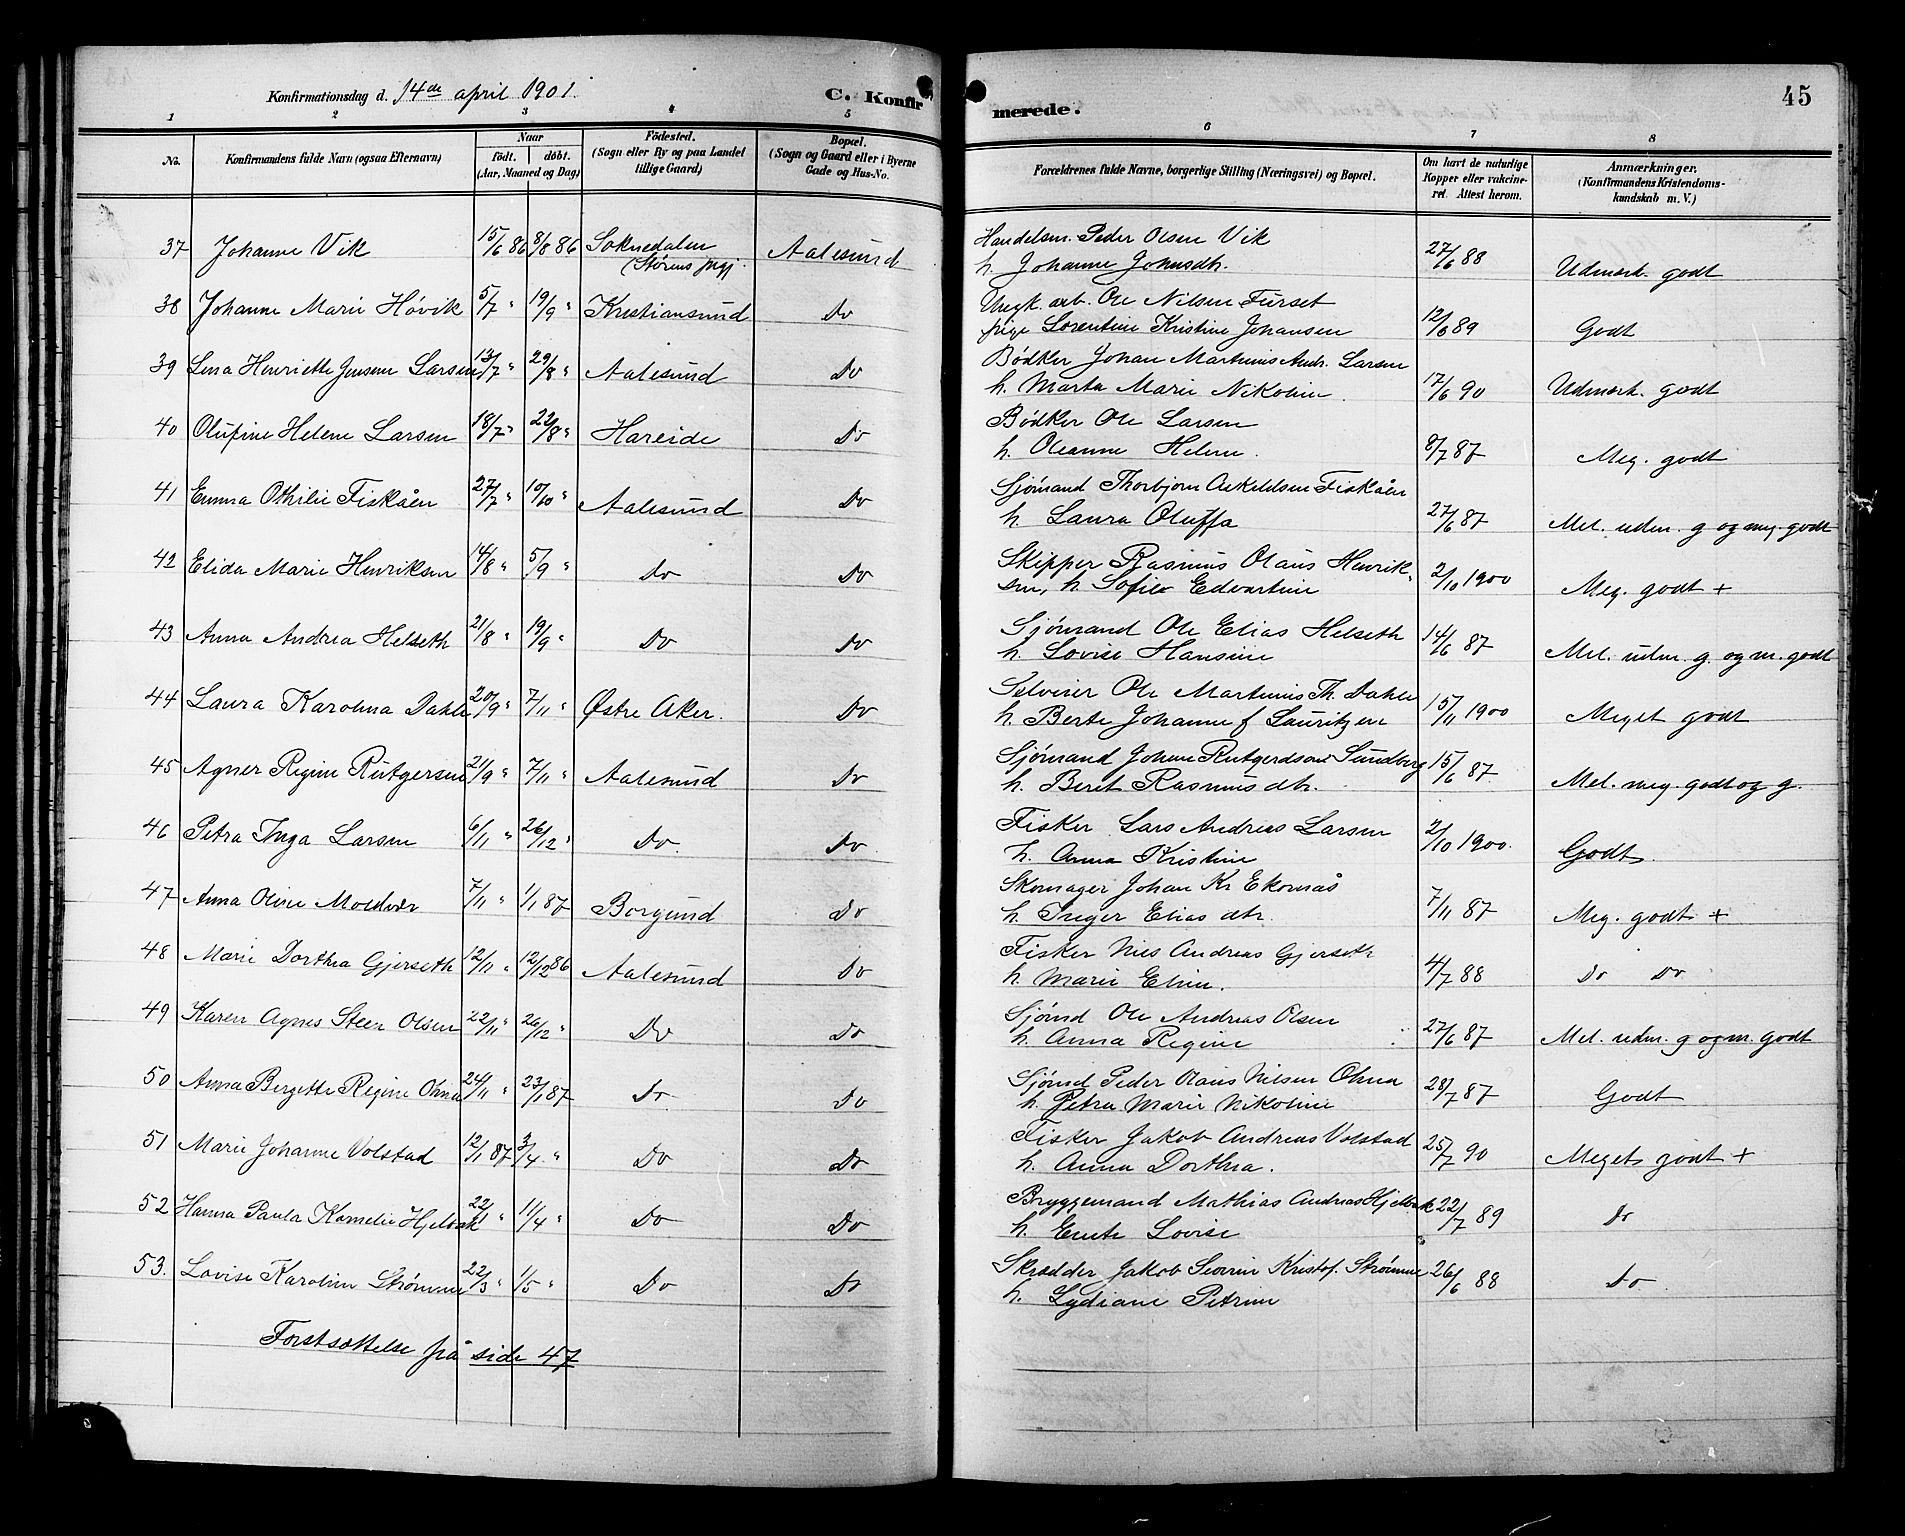 Konfirmationsdag d. 14de april 1901.
C. Konfirmerede.
45
1 2 3 4 5 6 7 8
No. Konfirmandens fulde Navn (ogsaa Efternavn) Naar født. døbt. (Aar, Maaned og Dag) Fødested. (Sogn eller By og paa Landet tillige Gaard) Bopæl. (Sogn og Gaard eller i Byerne Gade og Hus-No. Forældrenes fulde Navne, borgerlige Stilling (Næringsvei) og Bopæl. Om havt de naturlige Kopper eller vakcineret. Attest herom. Anmærkninger. (Konfirmandens Kristendomskundskab m. V.)
37 Johanne Vik 15/6 86 8/8 86 Soknedalen (Størens pgj. Aalesund Handelsm. Peder Olsen Vik
h. Johanne Johnsdh. 27/6 88 Udmærk. godt
38 Johanne Marie Høvik 5/7 " 19/9 " Kristiansund Do Ungk. arb. Ole Nilsen Furset
pige Lorentine Kristine Johansen 12/6 89 Godt
39 Lena Henriette Jensen Larsen 13/7 " 29/8 " Aalesund Do Bødker Johan Martinus Andr. Larsen
h. Marta Marie Nikoline. 17/6 90 Udmærk. godt
40 Olufine Helene Larsen 18/7 " 22/8 " Hareide Do Bødker Ole Larsen
h. Oleanne Helene. 8/7 87 Meg. godt
41 Emma Othilie Fiskåen 27/7 " 10/10 " Aalesund Do Sjømand Thorbjørn Fiskåen
h. Laura Oluffa 27/6 87 Mel. udm. g og meg. godt
42 Elida Marie Henriksen 14/8 " 5/9 " Do Do Skipper Rasmus Olaus Henrik-
sen, h. Sofie Edvartine 2/10 1900 Meg. godt +
43 Anna Andrea Helseth 21/8 " 19/9 " Do Do Sjømand Ole Elias Helseth
h. Lovise Hansine 14/6 87 Mel. udm. g. og m. godt
44 Laura Karolina Dahle 20/9 " 7/11 " Østre Aker. Do Selveier Ole Martinus Th. Dahle
h. Berte Johanne f Lauritzen 15/11 1900 Meget godt
45 Agner Regine Rutgersen 21/9 " 7/11 " Aalesund Do Sjømand Johan Rutgerdson Sundberg
h. Beret Rasmusdtr. 15/6 87 Mel. meg. godt og g.
46 Petra Inga Larsen 6/11 " 26/12 " Do. Do. Fisker Lars Andreas Larsen
h. Anna Kristine 2/10 1900. Godt.
47 Anna Oline Moldvær 7/11 " 1/1 87 Borgund Do Skomager Johan Kr Ekornås
h. Inger Elias dtr. 7/11 87 Meg. godt +
48 Marie Dorthea Gjerseth 12/11 " 12/12 86 Aalesund Do Fisker Nils Andreas Gjerseth
h. Marie Eline. 4/7 88 Do Do
49 Karen Agnes Steen Olsen 22/11 " 26/12 " Do Do Sjømd Ole Andreas Olsen
h. Anna Regine 27/6 87 Mel. udm. g og m. godt
50 Anna Bergette Regine Ohna 24/11 " 23/1 87 Do Do Sjømd Peder Olaus Nilsen Ohna
h. Petra Marie Nikoline 28/7 87 Godt
51 Marie Johanne Volstad 12/1 87 3/4 " Do Do Fisker Jakob Andreas Volstad
h. Anna Dorthea. 25/7 90 Meget godt +
52 Hanna Paula Kamelie Hjelbak 22/1 " 11/4 " Do Do Bryggemand Mathias Andreas Hjelbak
h. Ente Lovise 22/7 89 Do
53. Lovise Karoline Strømme 22/3 " 1/5 " Do Do Skrædder Jakob Severin Kristof. Strømme
h. Lydiane Petrine 26/6 88 Do
Forstsættelse på side 47